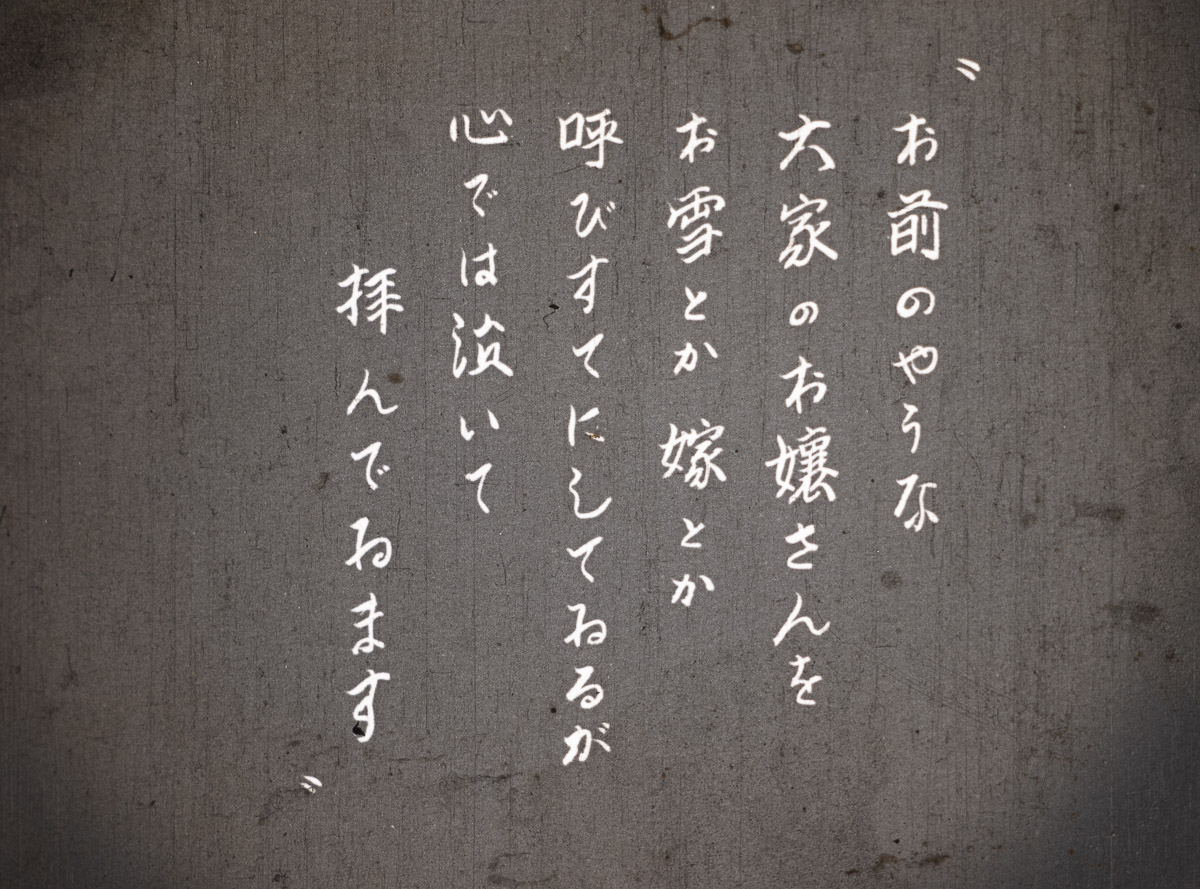 〝お前のやうな
大家のお嬢さんを
お雪とか 嫁とか
呼びすてにしてゐるが
心では泣いて
拝んでゐます〟